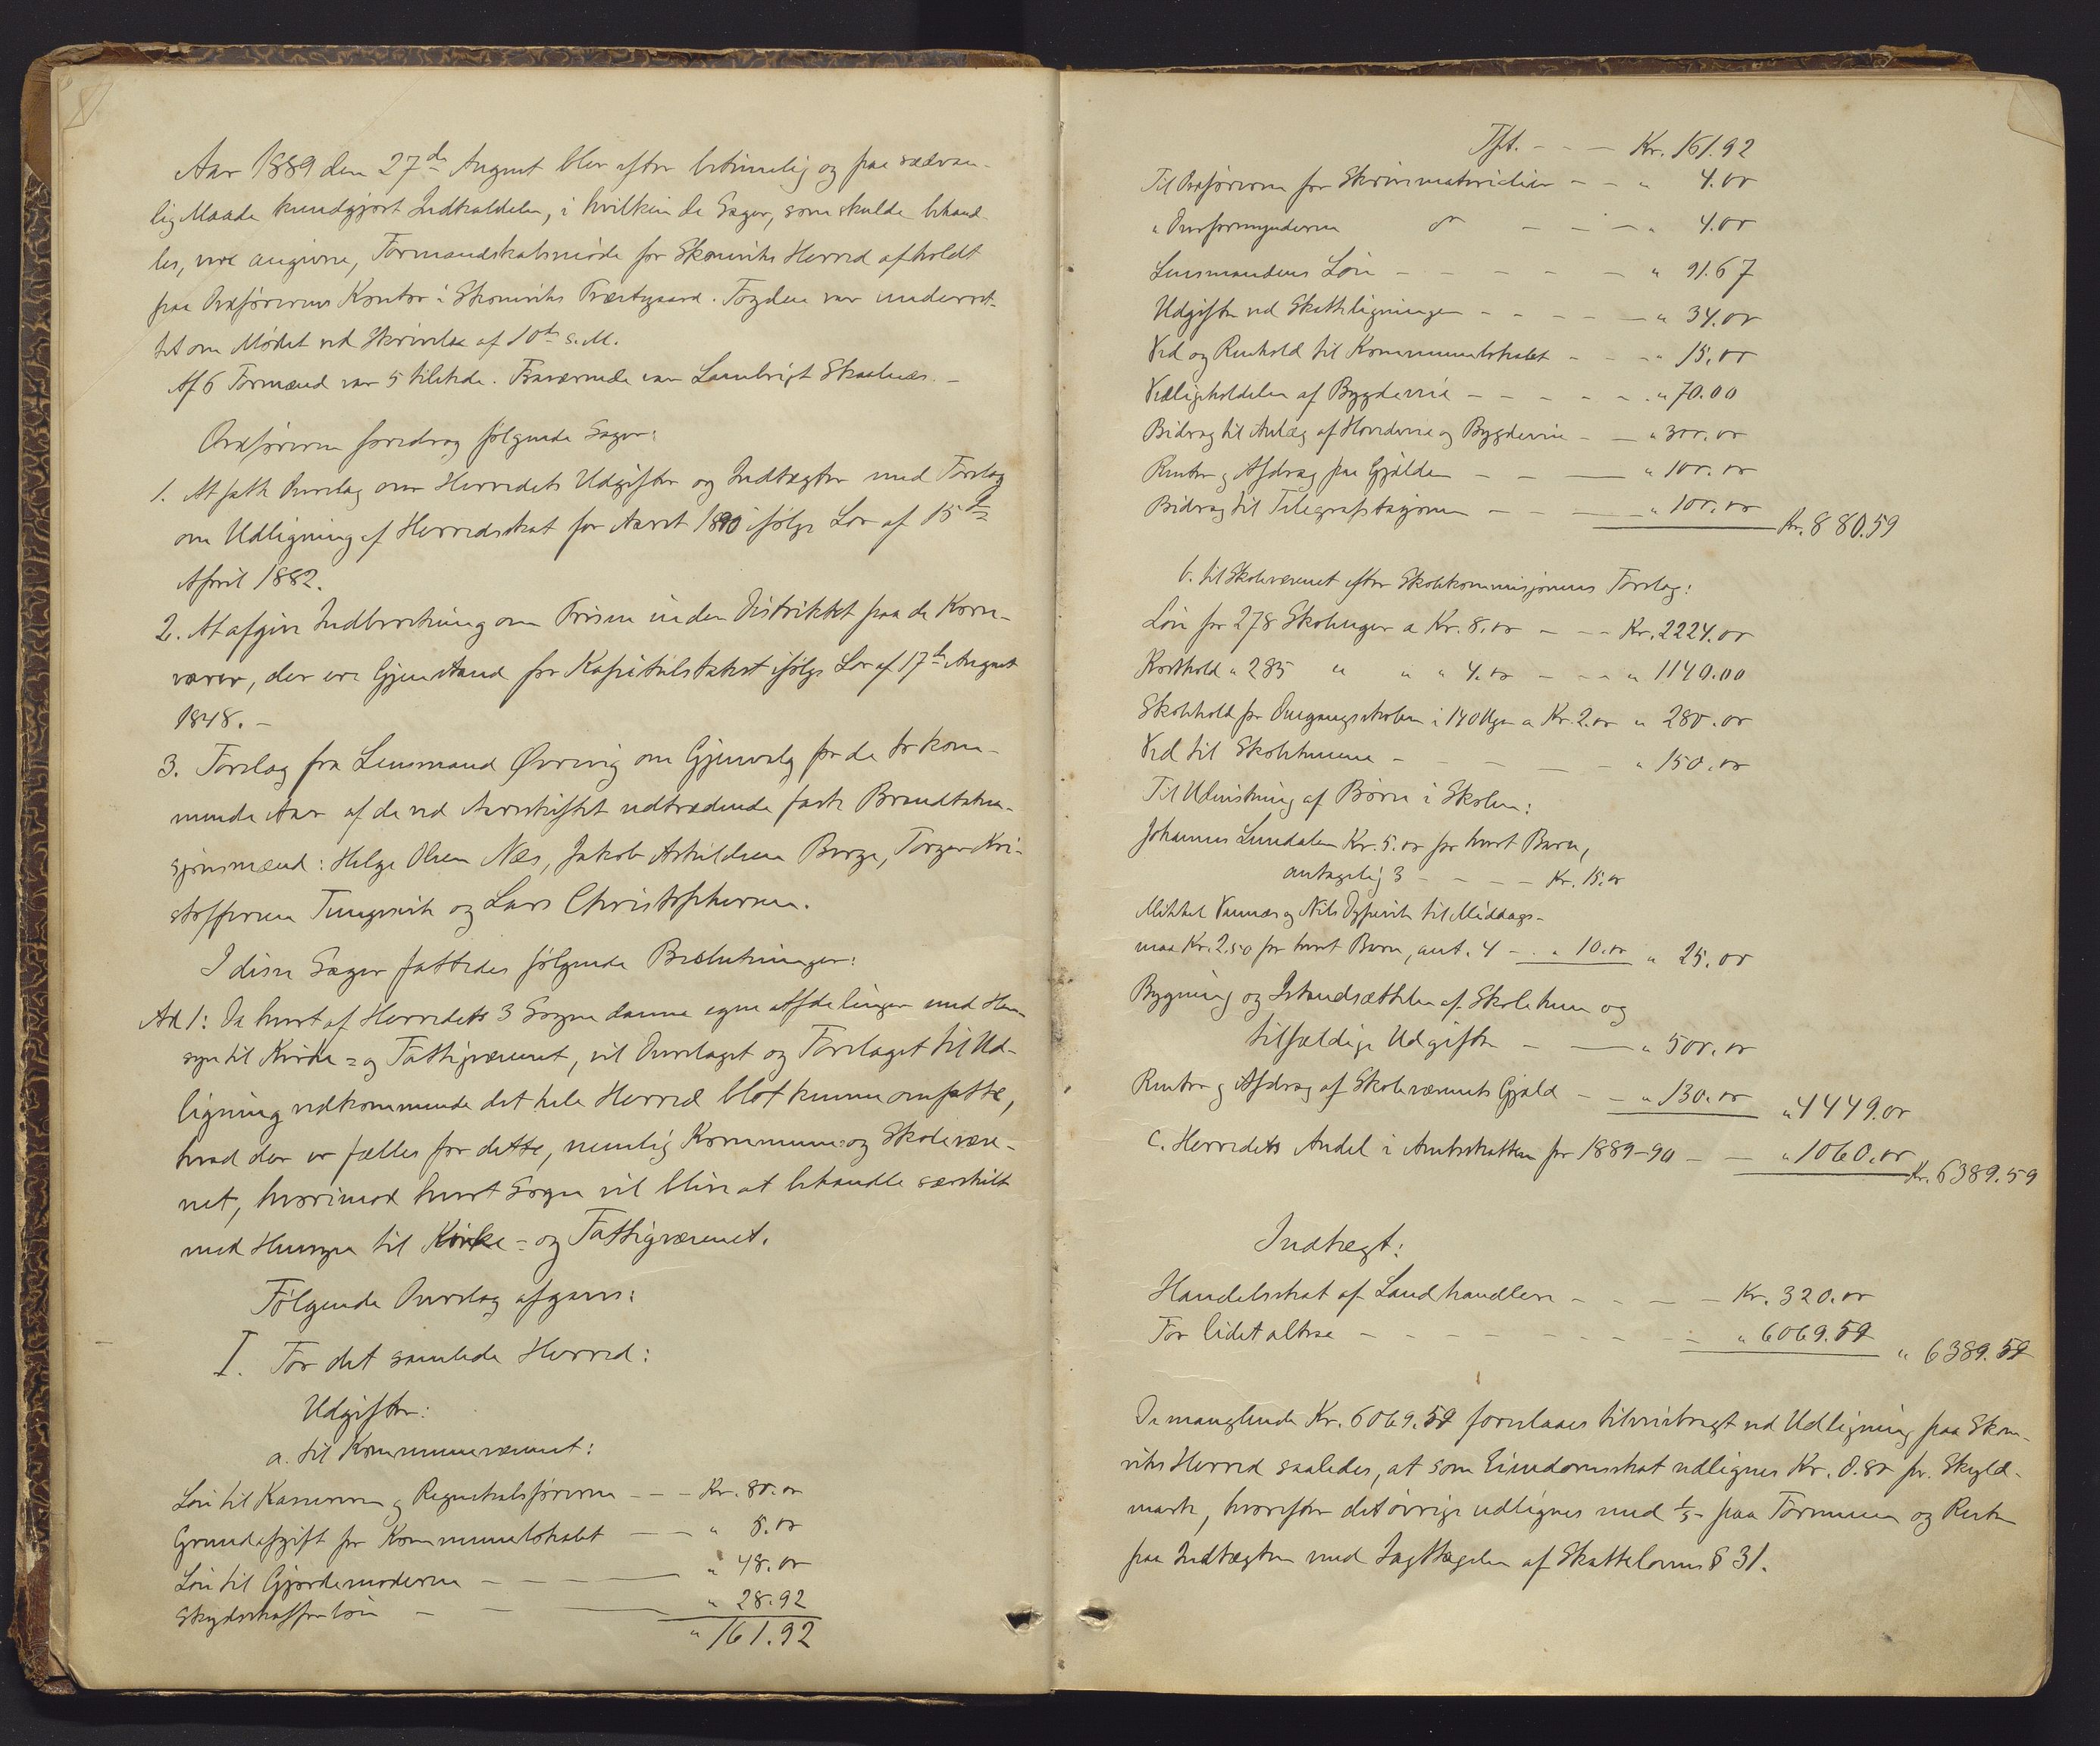 Aar 1889 den 27de August blev efter betimelig og paa sædvan-
lig Maade kundgjort Indkaldelse, i hvilken de Sager, som skulde behand-
les, vare angivne, Formandskabsmøde for Skoneviks Herred afholdt
paa Ordførerens Kontor i Skoneviks Præstegaard. Fogden var underret-
tet om Mødet ved Skrivelse af 10de s.M.
Af 6 Formænd var 5 tilstede. Fraværende var Lambrigt Skaalnæs. -
Ordføreren foredrog følgende Sager:
1. At fatte Overslag over Herredets Udgifter og Indtægter med Forslag
om Udligning af Herredsskat for Aaret 1890 ifølge Lov af 15de
April 1882.
2. At afgive Indberetning om Prisen inden Distriktet paa de Korn-
varer, der ere Gjenstand for Kapitelstakst ifølge Lov af 17de August
1848. -
3. Forslag fra Lensmand Øvrevig om Gjenvalg for de to kom-
mende Aar af de ved Aarsskiftet udtrædende faste Brandtaksa-
sjonsmænd: Helge Olsen Næs, Jakob Askildsen Borge, Torger Kri-
stoffersen Tungesvik og Lars Christophersen.
I disse Sager fattedes følgende Beslutninger:
Ad 1: Da hvert af Herredets 3 Sogne danne egne Afdelinger med Hen-
syn til Kirke- og Fattigvæsenet, vil Overslaget og Forslaget til Ud-
ligning vedkommende det hele Herred blot kunne omfatte,
hvad der er fælles for dette, nemlig Kommune- og Skolevæse-
net, hvorimod hvert Sogn vil blive at behandle særskilt
med Hensyn til Kirke- og Fattigvæsenet.
Følgende Overslag afgaves:
I. For det samlede Herred:
Udgifter:
a. til Kommunevæsenet:
Løn til Kasserern og Regnskabsførern - - - Kr. 80.00
Grundafgift for Kommunelokalet - - " 5.00
Løn til Gjordemoderen - - - " 48.00
Skydsskafferløn - - - " 28.92
" 161.92
Tpt. - - - Kr. 161.92
Til Ordføreren for Skrivematerialier - - " 4.00
" Overformynderen do - - - " 4.00
Lensmandens Løn - - - - - " 91.67
Udgifter ved Skatteligningen - - - - - " 34.00
Ved og Renhold til Kommunelokalet - - - " 15.00
Vedligeholdelse af Bygdeveie - - - - - " 70.00
Bidrag til Anlæg af Hovedveie og Bygdeveie - - " 300.00
Renter og Afdrag paa Gjælden - - - " 100.00
Bidrag til Telegrafstasjonen - - - " 100.00 Kr. 880.59
b. til Skolevæsenet efter Skolekommisjonens Forslag:
Løn for 278 Skoleuger a Kr. 8.00 - - - Kr. 2224.00
Kosthold " 285 " " " 4.00 - - - " 1140.00
Skolehold for Omgangsskolen i 140 Uger a Kr. 2.00 " 280.00
Ved til Skolehusene - - - - - " 150.00
Til Udvistning af Børn i Skolen:
Johannes Lundalen Kr. 5.00 for hvert Barn,
antagelig 3 - - - - Kr. 15.00
Mikkel Vannæs og Nils Dypevik til Middags-
maa Kr. 2.50 for hvert Barn, ant. 4 - - " 10.00 " 25.00
Bygning og Istandsættelse af Skolehuse og
tilfældige Udgifter - - " 500.00
Renter og Afdrag af Skolevæsenets Gjæld - - " 130.00 " 4449.00
c. Herredets Andel i Amtsskatten for 1889-90 - - " 1060.00 Kr. 6389.59
Indtægt:
Handelsskat af Landhandlere - - - - Kr. 320.00
For lidet altsaa - - - - - - - - - " 6069.59 " 6389.59
De manglende Kr. 6069.59 foreslaaes tilveiebragt ved Udligning paa Skone-
viks Herred saaledes, at som Eiendomsskat udlignes Kr. 0.80 pr. Skyld-
mark, hvorefter det øvrige udlignes med 1/5 paa Formuen og Resten
paa Indtægten med Iagttagelse af Skattelovens § 31.